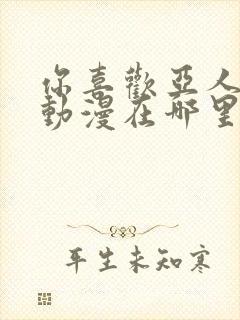 你喜歡亞人
動漫在哪里
平生未知寒